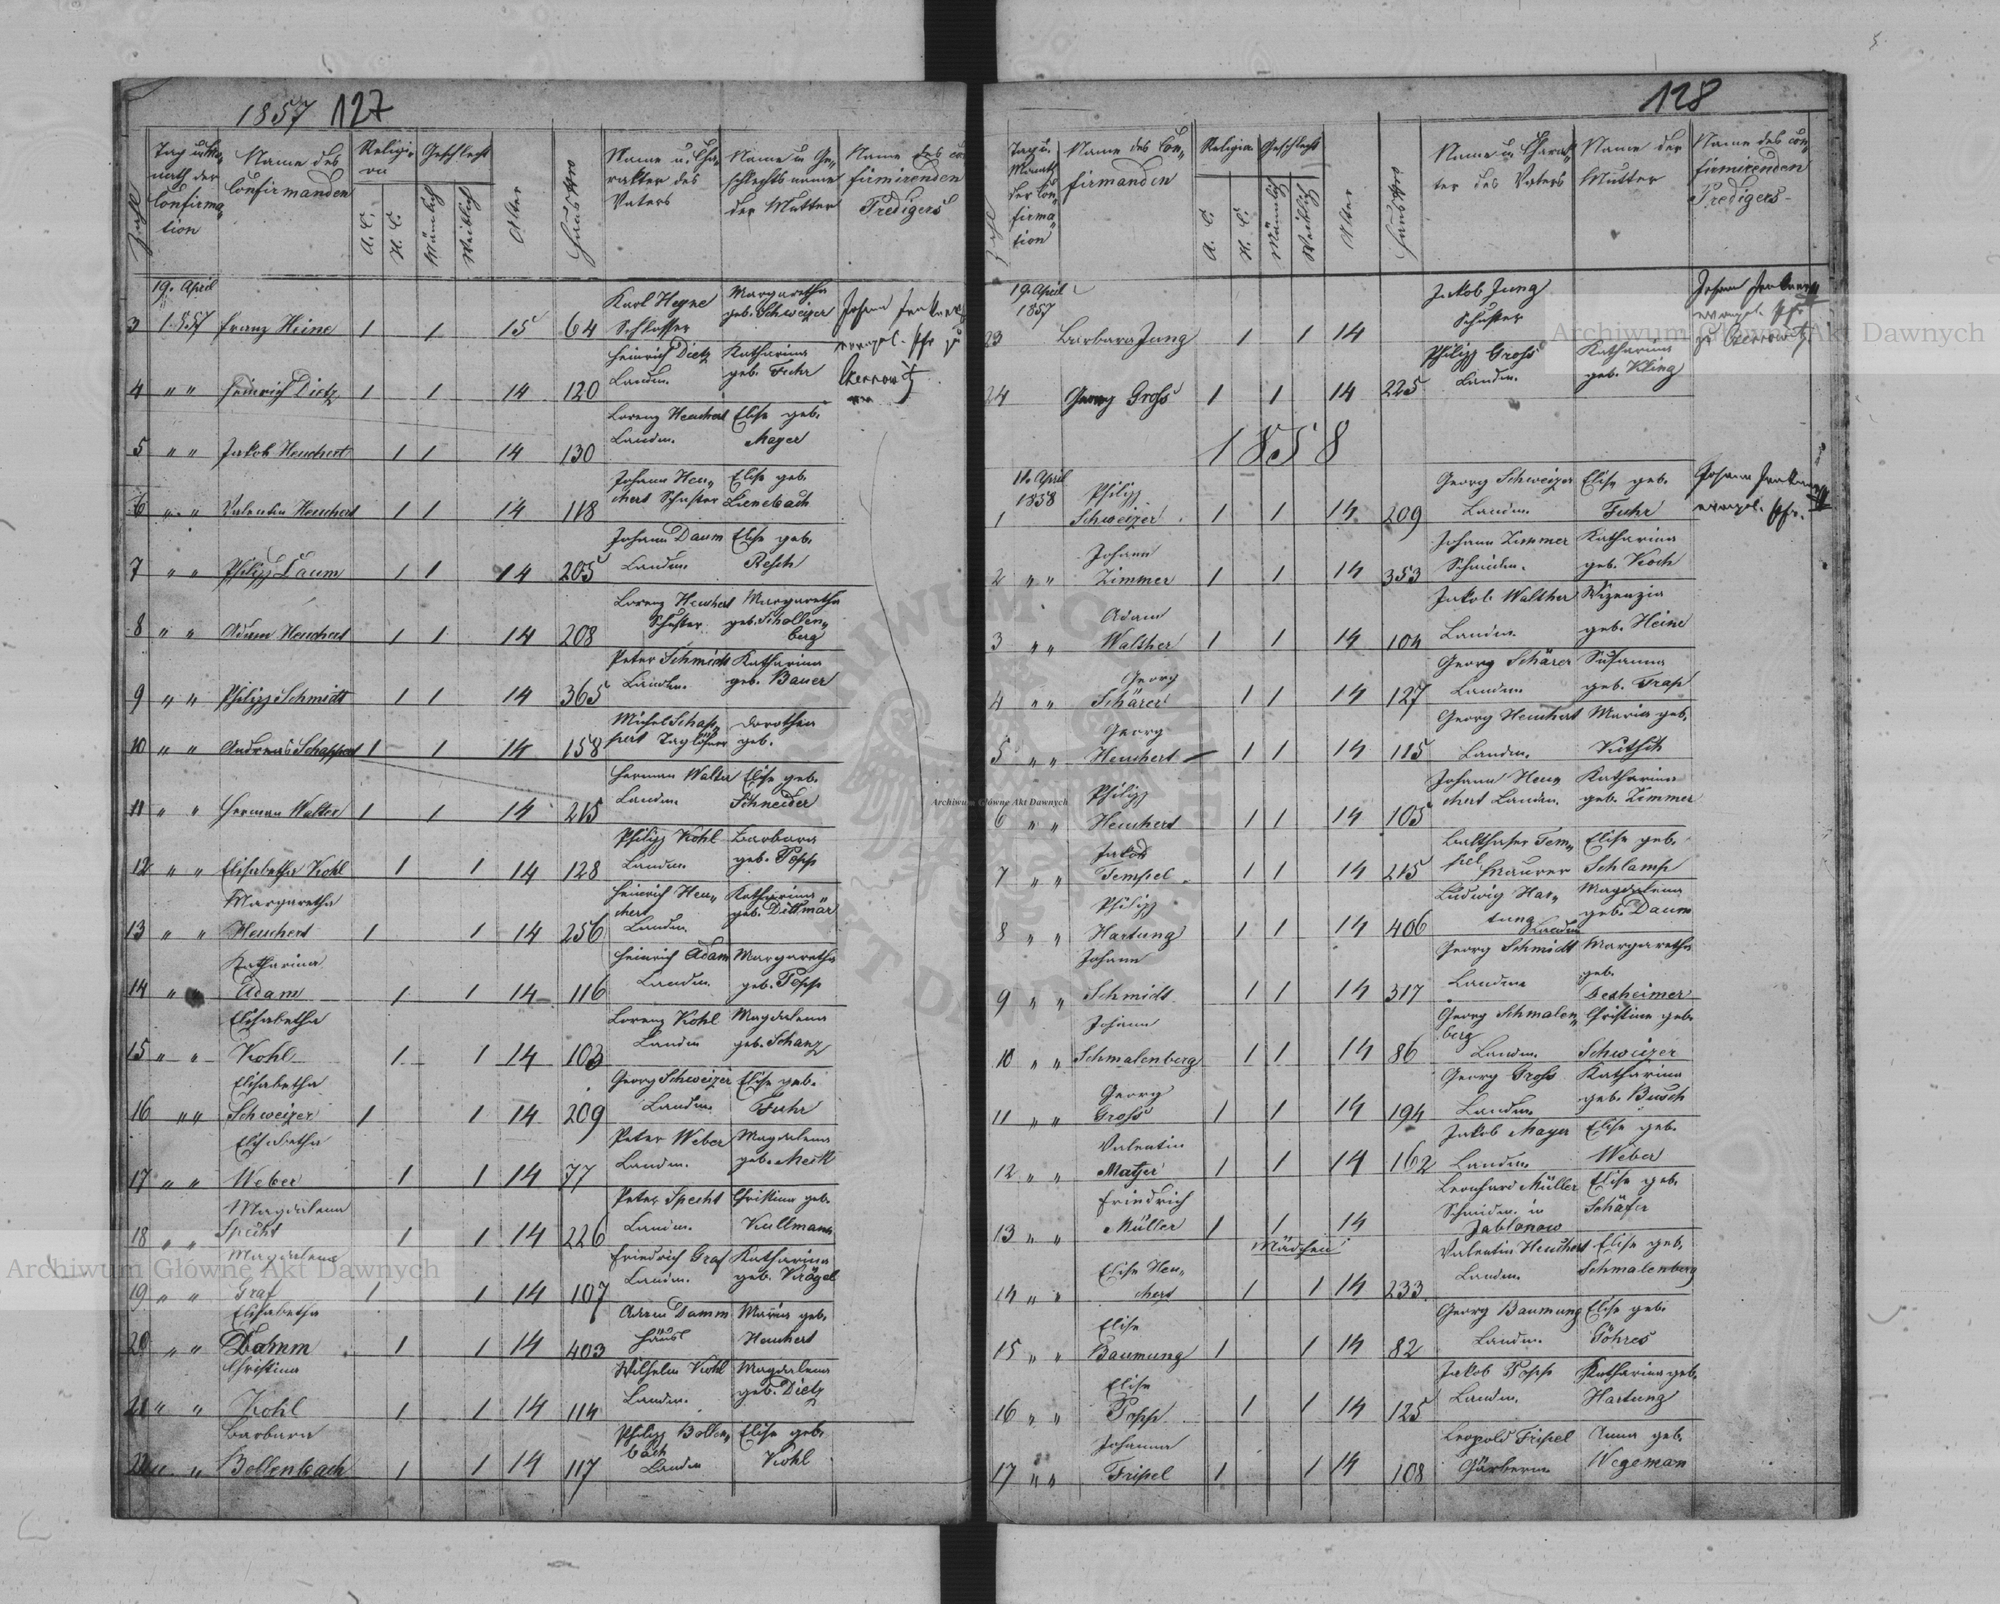 1857 127
Zahl
Tag u. Mo-
nath der
Confirma-
tion
Name des
Confirmanden
Religi-
on
A. C.
H. C.
Geschlecht
Männlich
Weiblich
Alter
Haus Nro
Name u. Cha-
rakter des
Vaters
Name u Ge-
schlechts name
der Mutter
Name des con-
firmirenden
Predigers
3 19. April 1857 Franz Heine 1 1 15 64 Karl Heyne Schlosser Margaretha geb. Schweizer Johann
evangel. Pfr zu
Czernowitz
4 " " Heinrich Dietz 1 1 14 120 Heinrich Dietz Landm. Katharina geb. Fuhr
5 " " Jakob Heuchert 1 1 14 130 Lorenz Heuchert Landm. Elise geb. Mayer
6 " " Valentin Heuchert 1 1 14 118 Johann Heu- chert Schuster Elise geb. Lienebach
7 " " Philipp Daum 1 1 14 205 Johann Daum Landm. Elise geb. Resch
8 " " Adam Heuchert 1 1 14 208 Lorenz Heuchert Schuster Margaretha geb. Schollen- berg
9 " " Philipp Schmidt 1 1 14 365 Peter Schmidt Landm. Katharina geb. Bauer
10 " " Andreas Schappert 1 1 14 158 Michel Schap- pert Taglöhner Dorothea geb.
11 " " Herman Walter 1 1 14 215 Herman Walter Landm. Elise geb. Schneider
12 " " Elisabetha Kohl 1 1 14 128 Philipp Kohl Landm. Barbara geb. Popp
13 " " Margaretha Heuchert 1 1 14 256 Heinrich Heu- chert Landm. Katharina geb. Dittmar
14 " " Katharina Adam 1 1 14 116 Heinrich Adam Landm. Margaretha geb. Popp
15 " " Elisabetha Kohl 1 1 14 103 Lorenz Kohl Landm Magdalena geb. Schanz
16 " " Elisabetha Schweizer 1 1 14 209 Georg Schweizer Landm. Elise geb. Fuhr
17 " " Elisabetha Weber 1 1 14 77 Peter Weber Landm. Magdalena geb. Merk
18 " " Magdalena Specht 1 1 14 226 Peter Specht Landm. Christina geb. Kullmann
19 " " Magdalena Graf 1 1 14 107 Friedrich Graf Landm. Katharina geb. Krögel
20 " " Elisabetha Damm 1 1 14 403 Adam Damm Häusl Maria geb. Heuchert
21 " " Christina Kohl 1 1 14 114 Wilhelm Kohl Landm. Magdalena geb. Dietz
22 " " Barbara Bollenbach 1 1 14 117 Philipp Bollen- bach Landm Elise geb. Kohl
128
Zahl
Tag u.
Monath
der Con-
firma-
tion
Name des Con-
firmanden
Religion
A. C.
H. C.
Geschlecht
Männlich
Weiblich
Alter
Haus Nro
Name u Charak-
ter des Vaters
Name der
Mutter
Name des con-
firmirenden
Predigers
23 19. April 1857 Barbara Jung 1 1 14 Jakob Jung Schuster Johann
evangel. Pfr.
zu Czernowitz
24 Georg Gross 1 1 14 225 Philipp Gross Landm. Katharina geb. Kling
1858
1 11. April 1858 Philipp Schweizer 1 1 14 209 Georg Schweizer Landm. Elise geb. Fuhr Johann
evangel. Pfr.
2 " " Johann Zimmer 1 1 14 353 Johann Zimmer Schmidm. Katharina geb. Koch
3 " " Adam Walther 1 1 14 104 Jakob Walther Landm. Wizenzia geb. Heine
4 " " Georg Schärer 1 1 14 127 Georg Schärer Landm. Susanna geb. Trap
5 " " Georg Heuchert 1 1 14 115 Georg Heuchert Landm. Maria geb.
6 " " Philipp Heuchert 1 1 14 105 Johann Heu- chert Landm. Katharina geb. Zimmer
7 " " Jakob Tempel 1 1 14 215 Balthaser Tem- pel Maurer Elise geb. Schlamp
8 " " Philipp Hartung 1 1 14 406 Ludwig Har- tung Landm Magdalena geb. Daum
9 " " Johann Schmidt 1 1 14 317 Georg Schmidt Landm. Margaretha geb. Dexheimer
10 " " Johann Schmalenberg 1 1 14 86 Georg Schmalen- berg Landm. Christina geb. Schweizer
11 " " Georg Gross 1 1 14 194 Georg Gross Landm. Katharina geb. Busch
12 " " Valentin Mayer 1 1 14 162 Jakob Mayer Landm. Elise geb. Weber
13 " " Friedrich Müller 1 1 14 Leonhard Müller Schmidm. in Jablonow Elise geb. Schäfer
Mädchen
14 " " Elise Heu- chert 1 1 14 233 Valentin Heuchert Landm. Elise geb. Schmalenberg
15 " " Elise Baumung 1 1 14 82 Georg Baumung Landm. Elise geb. Göhres
16 " " Elise Popp 1 1 14 125 Jakob Popp Landm. Katharina geb. Hartung
17 " " Johanna Fripel 1 1 14 108 Leopold Fripel Gärberm Anna geb. Wegeman
Archiwum Główne Akt Dawnych
Archiwum Główne Akt Dawnych
Archiwum Główne Akt Dawnych
ARCHIWUM GŁÓWNE AKT DAWNYCH